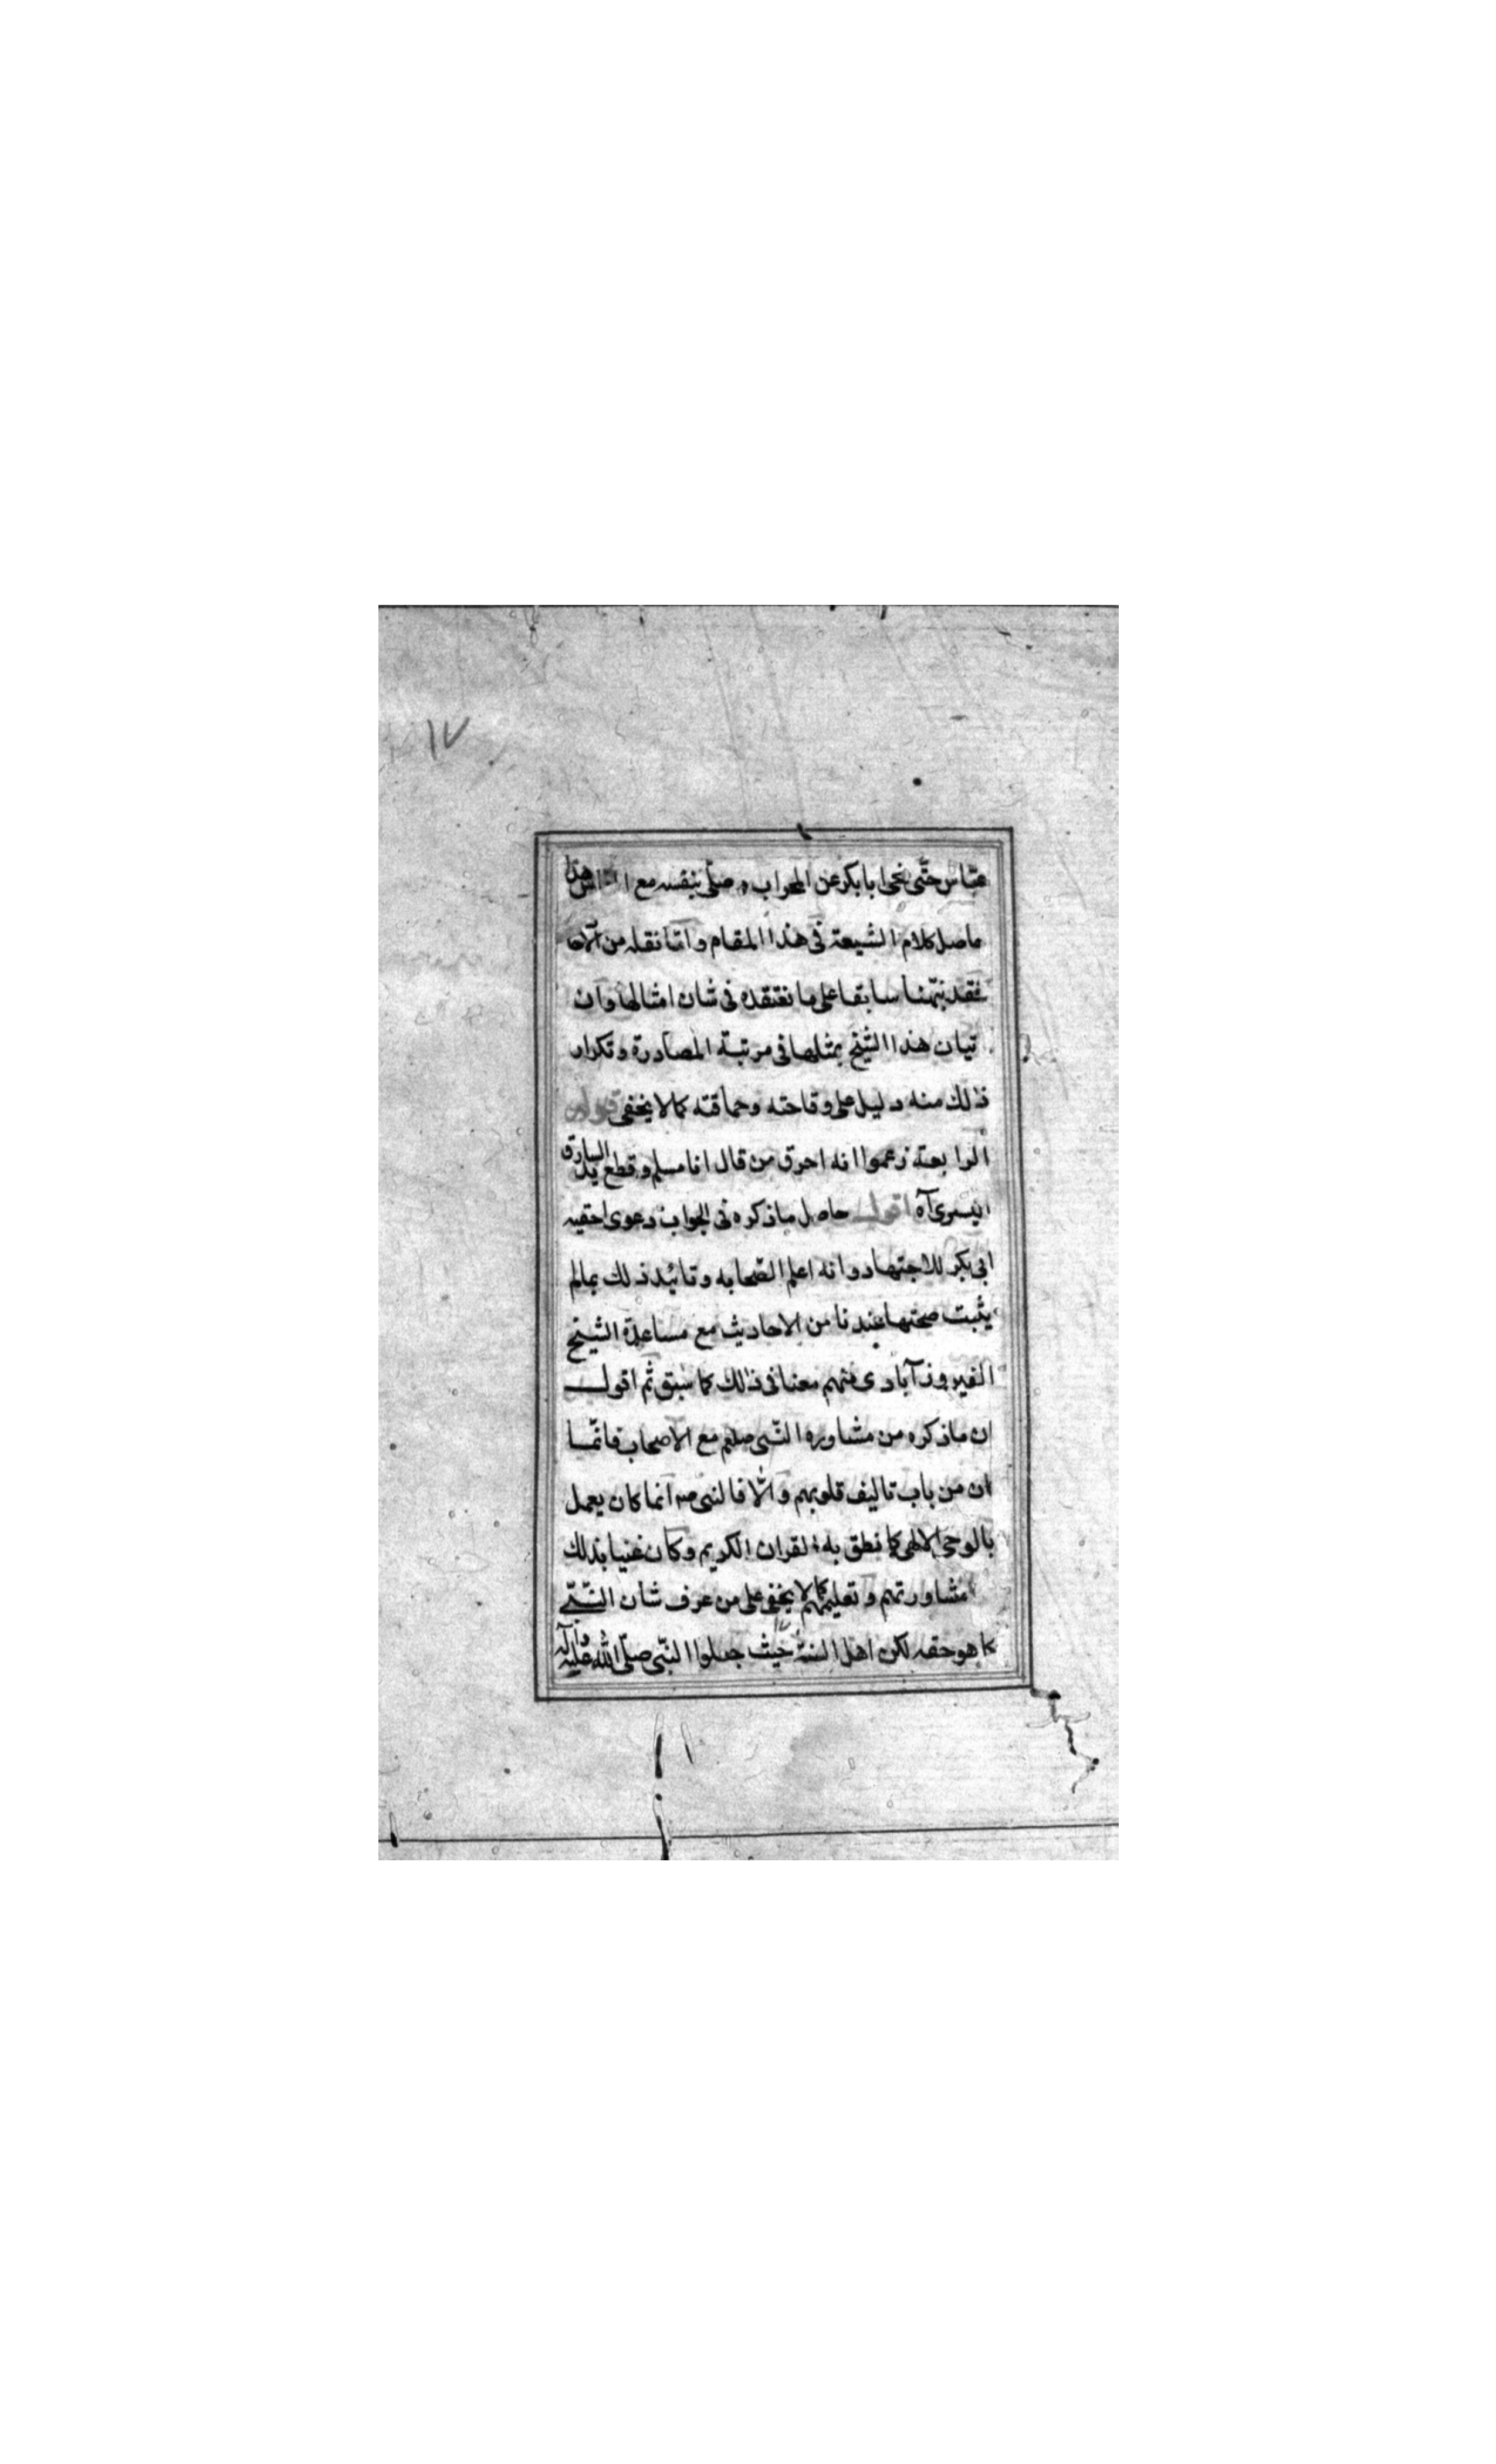 ١٧
عباس حتى نحى ابا بكر عن المحراب وصلى بنفسه مع الناس هذا
حاصل كلام الشيعة فى هذا المقام واما نقله من الآحا
فقد نبهنا سابقا على ما نعتقده فى شان امثالها وان
تيان هذا الشيخ بمثلها فى مرتبة المصادرة وتكرار
ذلك منه دليل على وقاحته وحماقته كما لا يخفى قوله
الرابعة زعموا انه احرق من قال انا مسلم وقطع يد السارق
اليسرى آه اقول حاصل ما ذكره فى الجواب دعوى احقيه
ابى بكر للاجتهاد وانه اعلم الصحابه وتائيد ذلك بمالم
يثبت صحتها عندنا من الاحاديث مع مساعدة الشيخ
الفيروزآبادى منهم معنا فى ذلك كما سبق ثم اقول
ان ما ذكره من مشاوره النبى صلعم مع الاصحاب فانما
ان من باب تاليف قلوبهم والا فالنبى صه انما كان يعمل
بالوحى الالهى كما نطق به القران الكريم وكان غنيا بذلك
مشاورتهم وتعليمهم كما لا يخفى على من عرف شان النبى
كما هو حقه لكن اهل السنة حيث جعلوا النبى صلى الله عليه واله